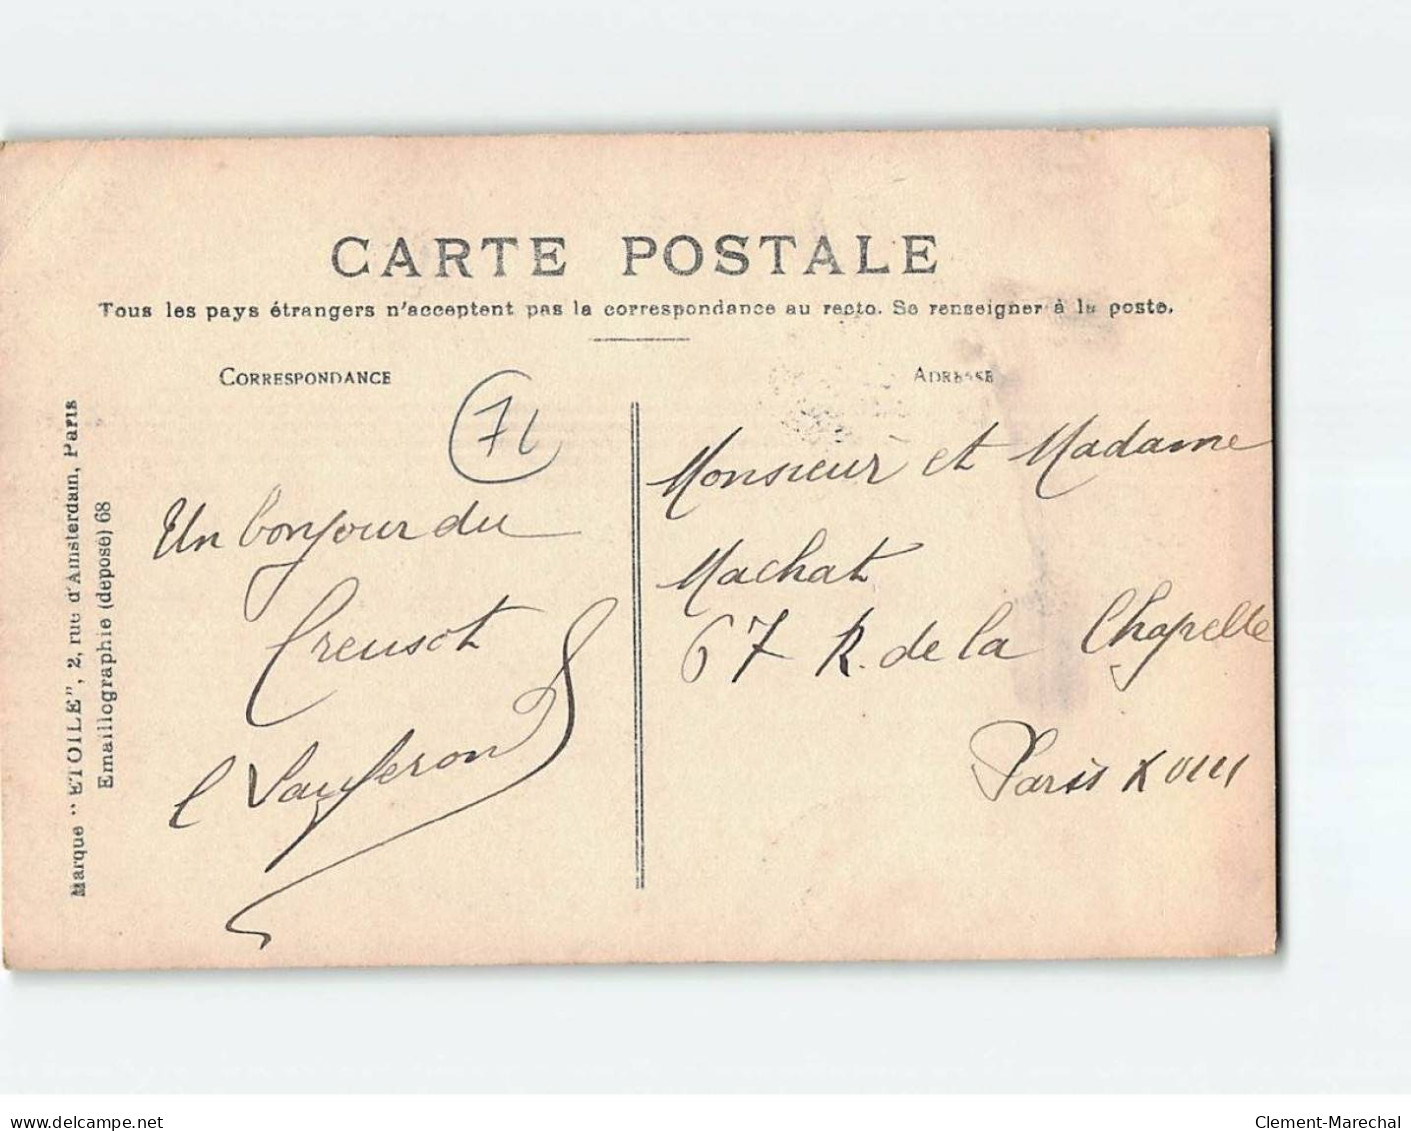 CARTE POSTALE
Tous les pays étrangers n'acceptent pas la correspondance au recto. Se renseigner à la poste.
CORRESPONDANCE
ADRESSE
71
Marque "ETOILE", 2, rue d'Amsterdam, Paris
Emaillographie (déposé) 68
Un bonjour du
Creusot
Monsieur et Madame
Machat
67 R. de la Chapelle
Paris XVIII
www.delcampe.net
Clement-Marechal